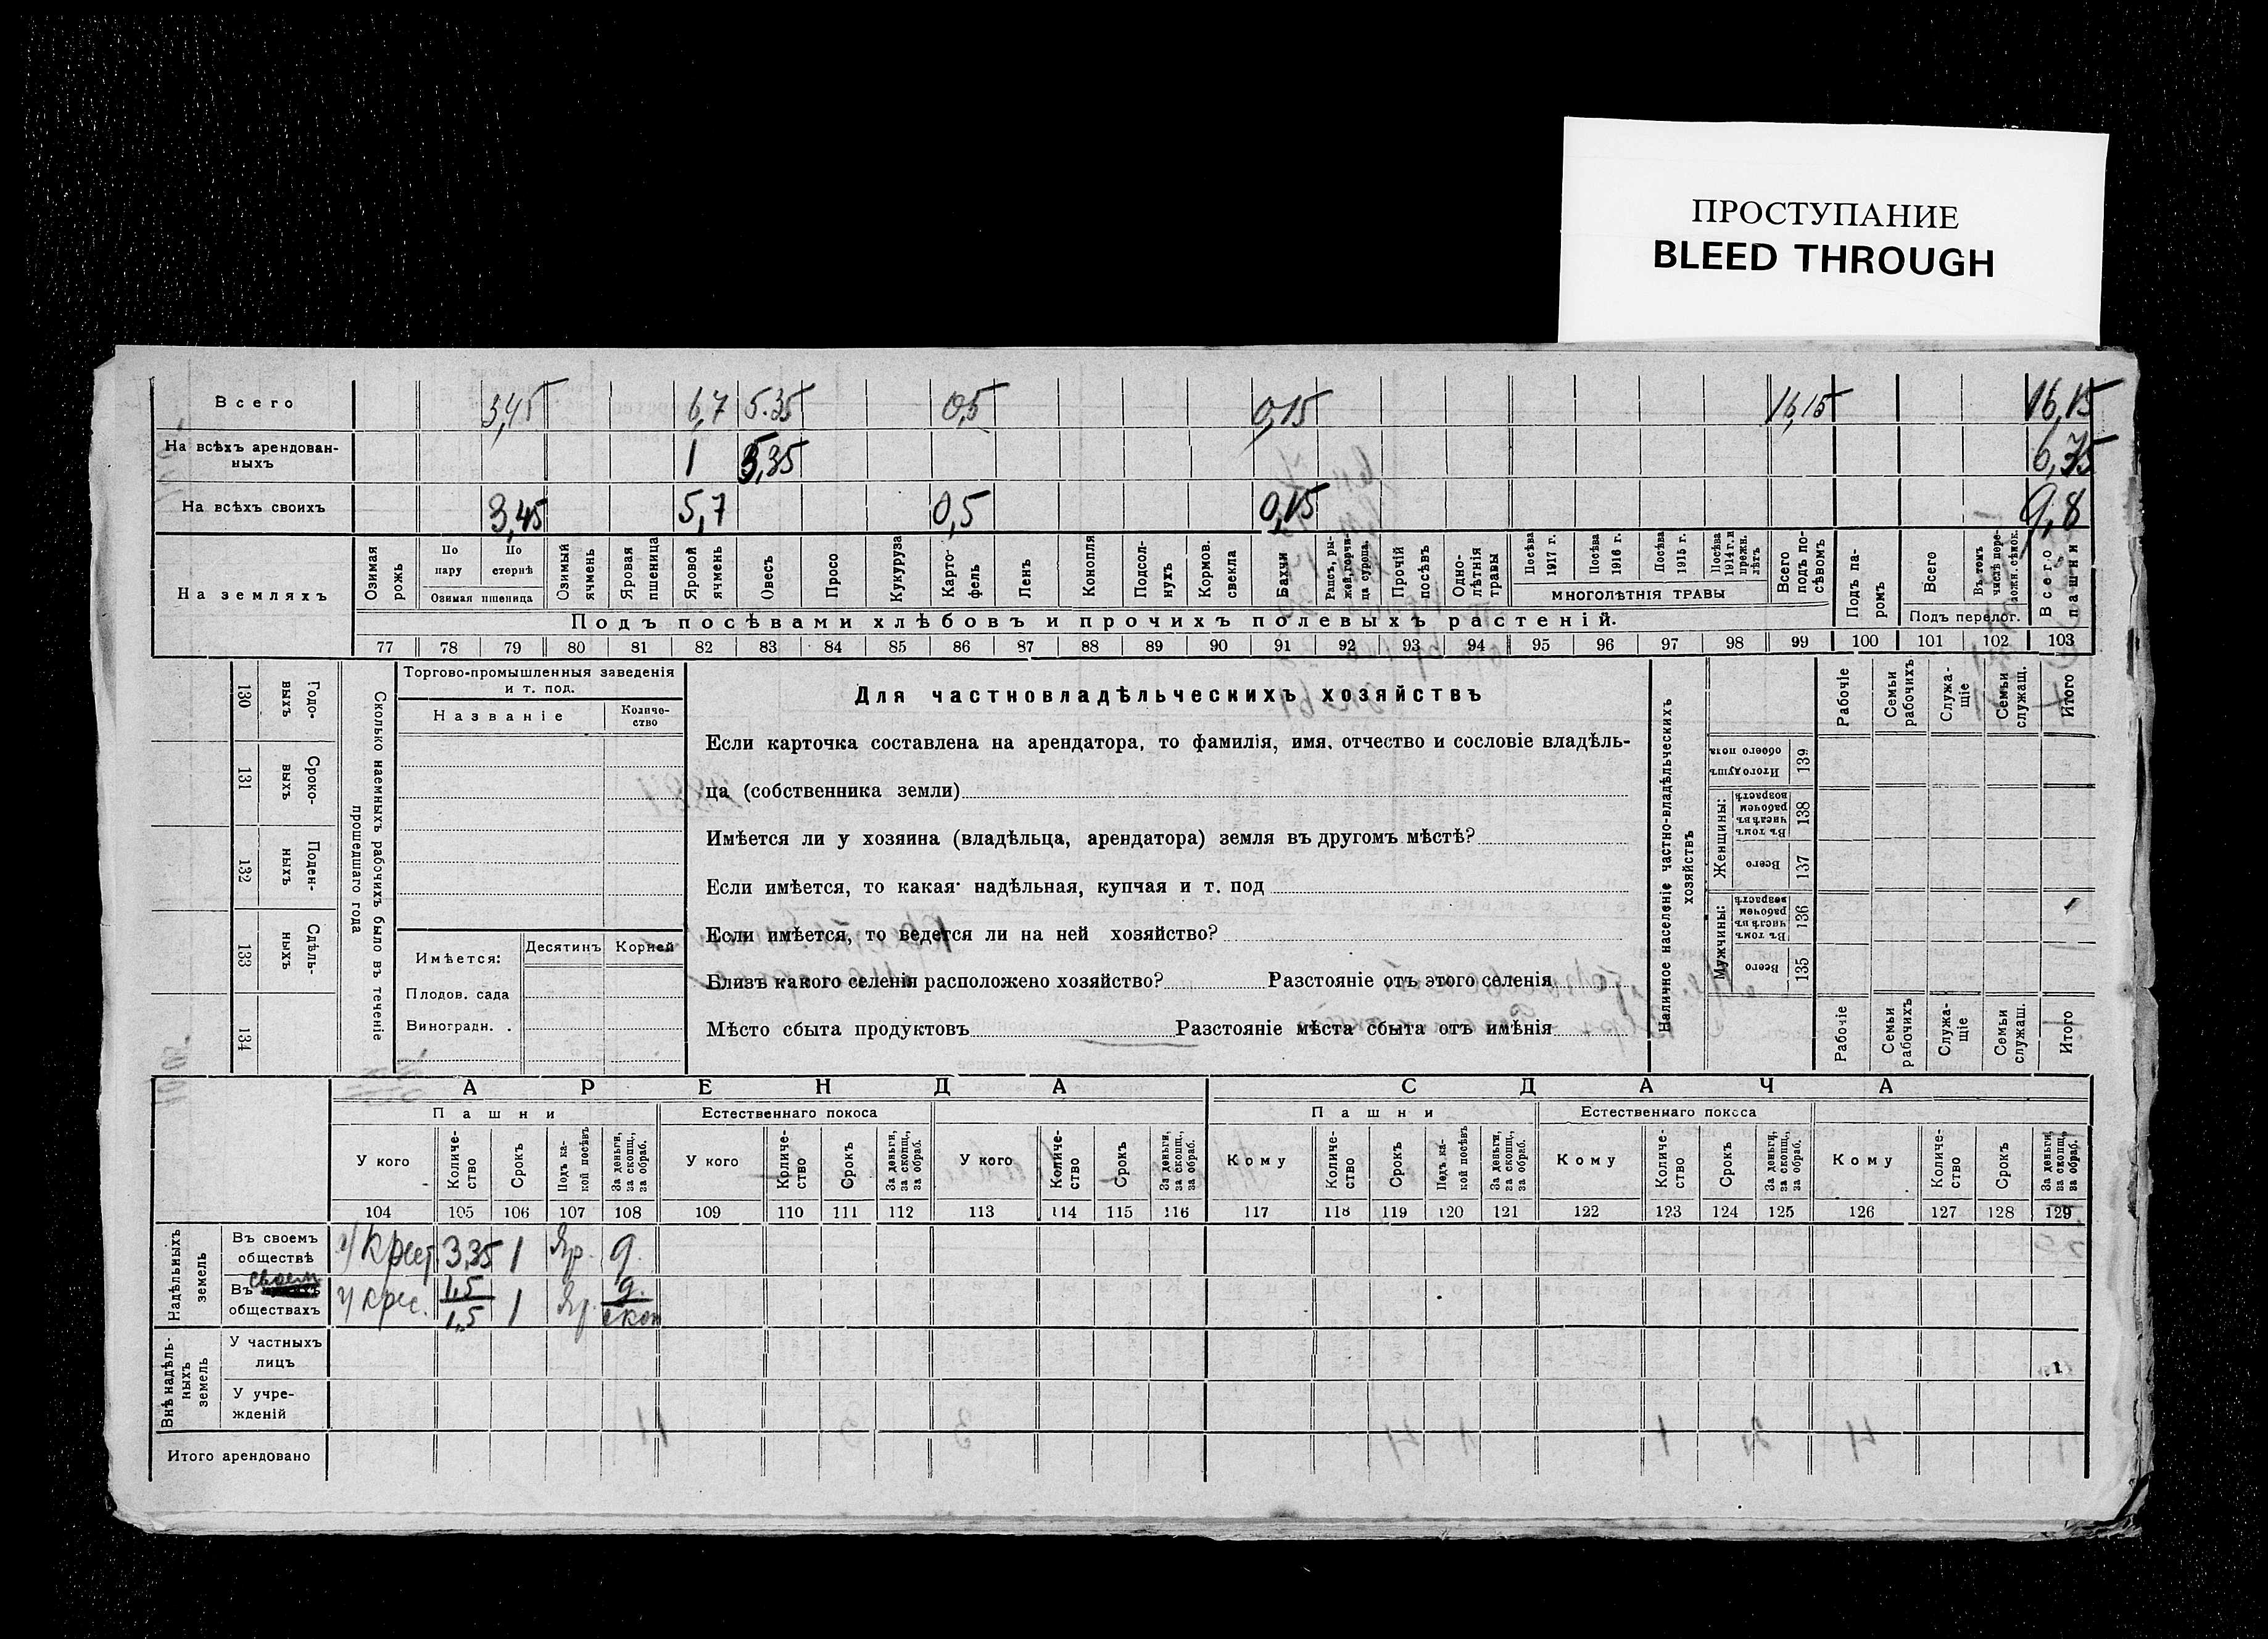 ПРОСТУПАНИЕ
BLEED THROUGH
Всего 3,45 6,7 5.35 0,5 0,15 16,15 16,15
На всѣхъ арендован-
ныхъ 1 5,35 6,35
На всѣхъ своихъ 3,45 5,7 0,5 0,15 9,8
На земляхъ
Озимая рожь
По пару
По стернѣ
Озимая пшеница
Озимый ячмень
Яровая пшеница
Яровой ячмень
Овесъ
Просо
Кукуруза
Карто-
фель
Ленъ
Конопля
Подсол-
нухъ
Кормов. свекла
Бахчи
Рапсъ, ры-
жей, горчи-
ца сурепа.
Прочій посѣвъ
Одно-
лѣтнія травы
Посѣва 1917 г.
Посѣва 1916 г.
Посѣва 1915 г.
Посѣва 1914 г. и прежн. лѣтъ
МНОГОЛѢТНІЯ ТРАВЫ
Всего подъ по-
сѣвомъ
Подъ па-
ромъ
Всего
Въ томъ числѣ пере-
ложн. сѣнок.
Подъ перелог.
Всего пашни
Подъ посѣвами хлѣбовъ и прочихъ полевыхъ растеній.
77 78 79 80 81 82 83 84 85 86 87 88 89 90 91 92 93 94 95 96 97 98 99 100 101 102 103
130 Годо-
выхъ
131 Сроко-
выхъ
132 Поден-
ныхъ
133 Сдѣль-
ныхъ
134
Сколько наемныхъ рабочихъ было въ теченіе
прошедшаго года
Торгово-промышленныя заведенія
и т. под.
Названіе
Количе-
ство
Имѣется:
Десятинъ Корней
Плодов. сада
Виноградн. .
Для частновладѣльческихъ хозяйствъ
Если карточка составлена на арендатора, то фамилія, имя, отчество и сословіе владѣль-
ца (собственника земли)
Имѣется ли у хозяина (владѣльца, арендатора) земля въ другомъ мѣстѣ?
Если имѣется, то какая: надѣльная, купчая и т. под
Если имѣется, то ведется ли на ней хозяйство?
Близъ какого селенія расположено хозяйство? Разстояніе отъ этого селенія
Мѣсто сбыта продуктовъ Разстояніе мѣста сбыта отъ имѣнія
Наличное населеніе частно-владѣльческихъ
хозяйствъ
Рабочіе
Семьи рабочихъ
Служа-
щіе
Семьи служащ.
Итого
Итого душъ обоего пола 139
Женщины:
Въ томъ числѣ въ рабочемъ возрастѣ 138
Всего 137
Мужчины:
Въ томъ числѣ въ рабочемъ возрастѣ 136
Всего 135
Рабочіе
Семьи рабочихъ
Служа-
щіе
Семьи служащ.
Итого
АРЕНДА СДАЧА
Пашни Естественнаго покоса Пашни Естественнаго покоса
У кого
Количе-
ство
Срокъ
Подъ ка-
кой посѣвъ
За деньги, за скопщ., за обраб.
У кого
Количе-
ство
Срокъ
За деньги, за скопщ., за обраб.
У кого
Количе-
ство
Срокъ
За деньги, за скопщ., за обраб.
Кому
Количе-
ство
Срокъ
Подъ ка-
кой посѣвъ
За деньги, за скопщ., за обраб.
Кому
Количе-
ство
Срокъ
За деньги, за скопщ., за обраб.
Кому
Количе-
ство
Срокъ
За деньги, за скопщ., за обраб.
104 105 106 107 108 109 110 111 112 113 114 115 116 117 118 119 120 121 122 123 124 125 126 127 128 129
Надѣльныхъ земель
Въ своемъ
обществѣ у крест 3,35 1 Яр. д.
своем
Въ
обществахъ у крес. 1,5 1,5 1 Яр. д. скоп
Внѣ надѣль-
ныхъ земель
У частныхъ
лицъ
У учре-
жденій
Итого арендовано